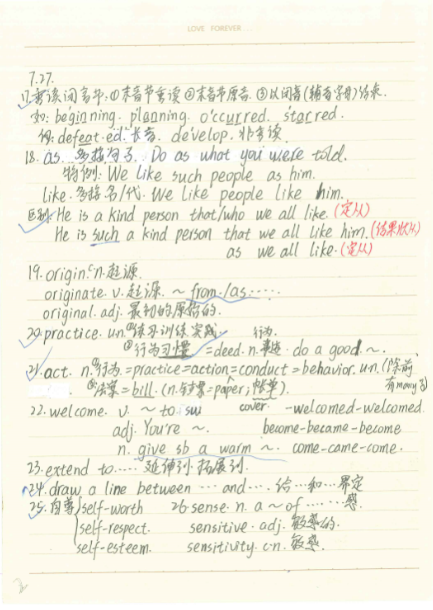 LOVE FOREVER
7.27.
17.重读闭音节:①末音节重读 ②末音节原音 ③以闭音(辅音字母)结尾
如: beginning. planning. o'ccurred. starred.
例: defeat-ed:长音. de'velop. 非重读
18. as. 多接句子. Do as what you were told.
特例: We like such people as him.
like. 多接名/代. We like people like him.
区别: He is a kind person that/who we all like. (定从)
He is such a kind person that we all like him. (结果状从)
as we all like. (定从)
19. origin. cn. 起源
originate. v. 起源. ~ from/as.....
original. adj. 最初的原始的.
20. practice. un. ①练习训练实践
②行为习惯 = deed. n. 事迹. do a good ~. 行为.
21. act. n. ①行为. = practice = action = conduct = behavior. un. (除前
②法案 = bill. (n. 钞票 = paper; 账单). 有many等)
22. welcome. v. ~ to sw cover. -welcomed-welcomed.
adj. You're ~. become-became-become
n. give sb a warm ~. come-came-come.
23. extend to..... 延伸到. 拓展到.
24. draw a line between ... and ..... 给...和...界定
25. 自尊 self-worth 26. sense. n. a ~ of ...... 感.
self-respect. sensitive. adj. 敏感的.
self-esteem. sensitivity. c-n. 敏感.